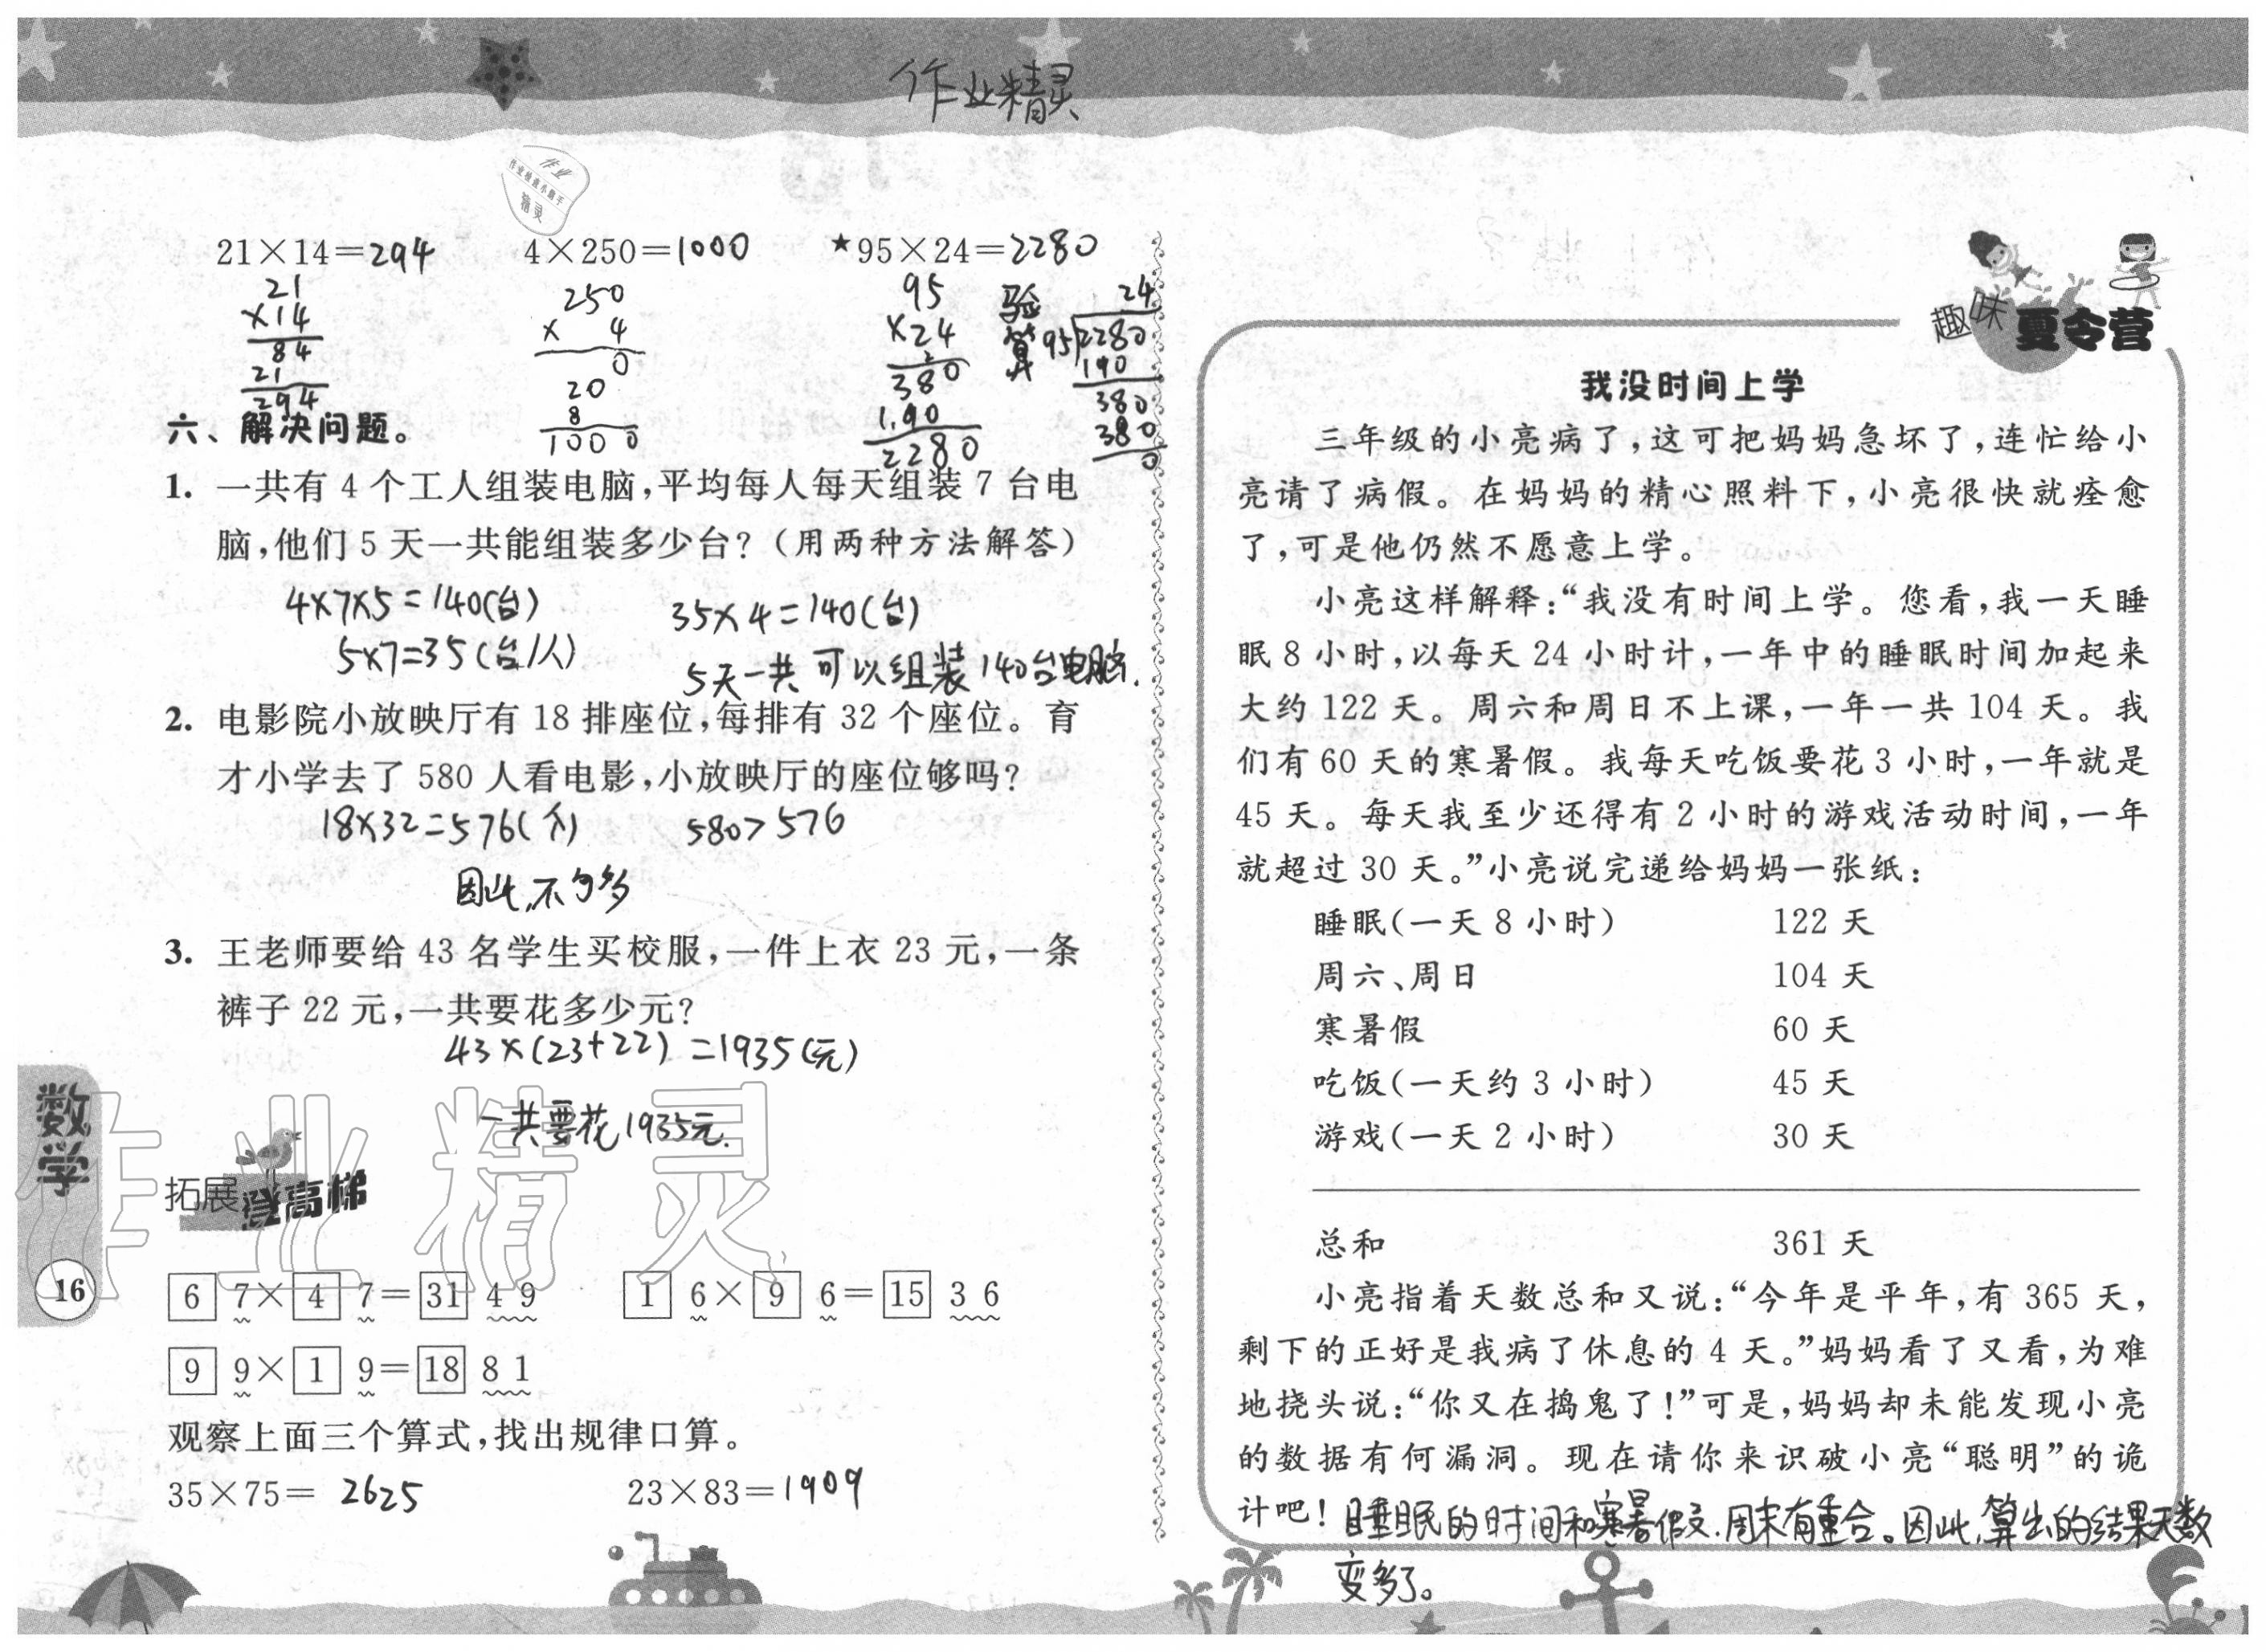 作业精灵
21×14=294
4×250=1000
★95×24=2280
21
×14
84
21
294
250
× 4
0
20
8
1000
95
×24
380
190
2280
验算
24
95 2280
190
380
380
0
六、解决问题。
1. 一共有 4 个工人组装电脑,平均每人每天组装 7 台电
脑,他们 5 天一共能组装多少台?(用两种方法解答)
4×7×5=140(台)
35×4=140(台)
5×7=35(台/人)
5天一共可以组装140台电脑.
2. 电影院小放映厅有 18 排座位,每排有 32 个座位。育
才小学去了 580 人看电影,小放映厅的座位够吗?
18×32=576(个)
580>576
因此,不够
3. 王老师要给 43 名学生买校服,一件上衣 23 元,一条
裤子 22 元,一共要花多少元?
43×(23+22)=1935(元)
一共要花1935元.
数学
16
拓展登高梯
6 7×4 7=31 4 9
1 6×9 6=15 3 6
9 9×1 9=18 8 1
观察上面三个算式,找出规律口算。
35×75= 2625
23×83=1909
作业精灵
趣味夏令营
我没时间上学
三年级的小亮病了,这可把妈妈急坏了,连忙给小
亮请了病假。在妈妈的精心照料下,小亮很快就痊愈
了,可是他仍然不愿意上学。
小亮这样解释:“我没有时间上学。您看,我一天睡
眠 8 小时,以每天 24 小时计,一年中的睡眠时间加起来
大约 122 天。周六和周日不上课,一年一共 104 天。我
们有 60 天的寒暑假。我每天吃饭要花 3 小时,一年就是
45 天。每天我至少还得有 2 小时的游戏活动时间,一年
就超过 30 天。”小亮说完递给妈妈一张纸:
睡眠(一天 8 小时) 122 天
周六、周日 104 天
寒暑假 60 天
吃饭(一天约 3 小时) 45 天
游戏(一天 2 小时) 30 天
总和 361 天
小亮指着天数总和又说:“今年是平年,有 365 天,
剩下的正好是我病了休息的 4 天。”妈妈看了又看,为难
地挠头说:“你又在捣鬼了!”可是,妈妈却未能发现小亮
的数据有何漏洞。现在请你来识破小亮“聪明”的诡
计吧!睡眠的时间和寒暑假.周末有重合。因此,算出的结果天数
变多了。